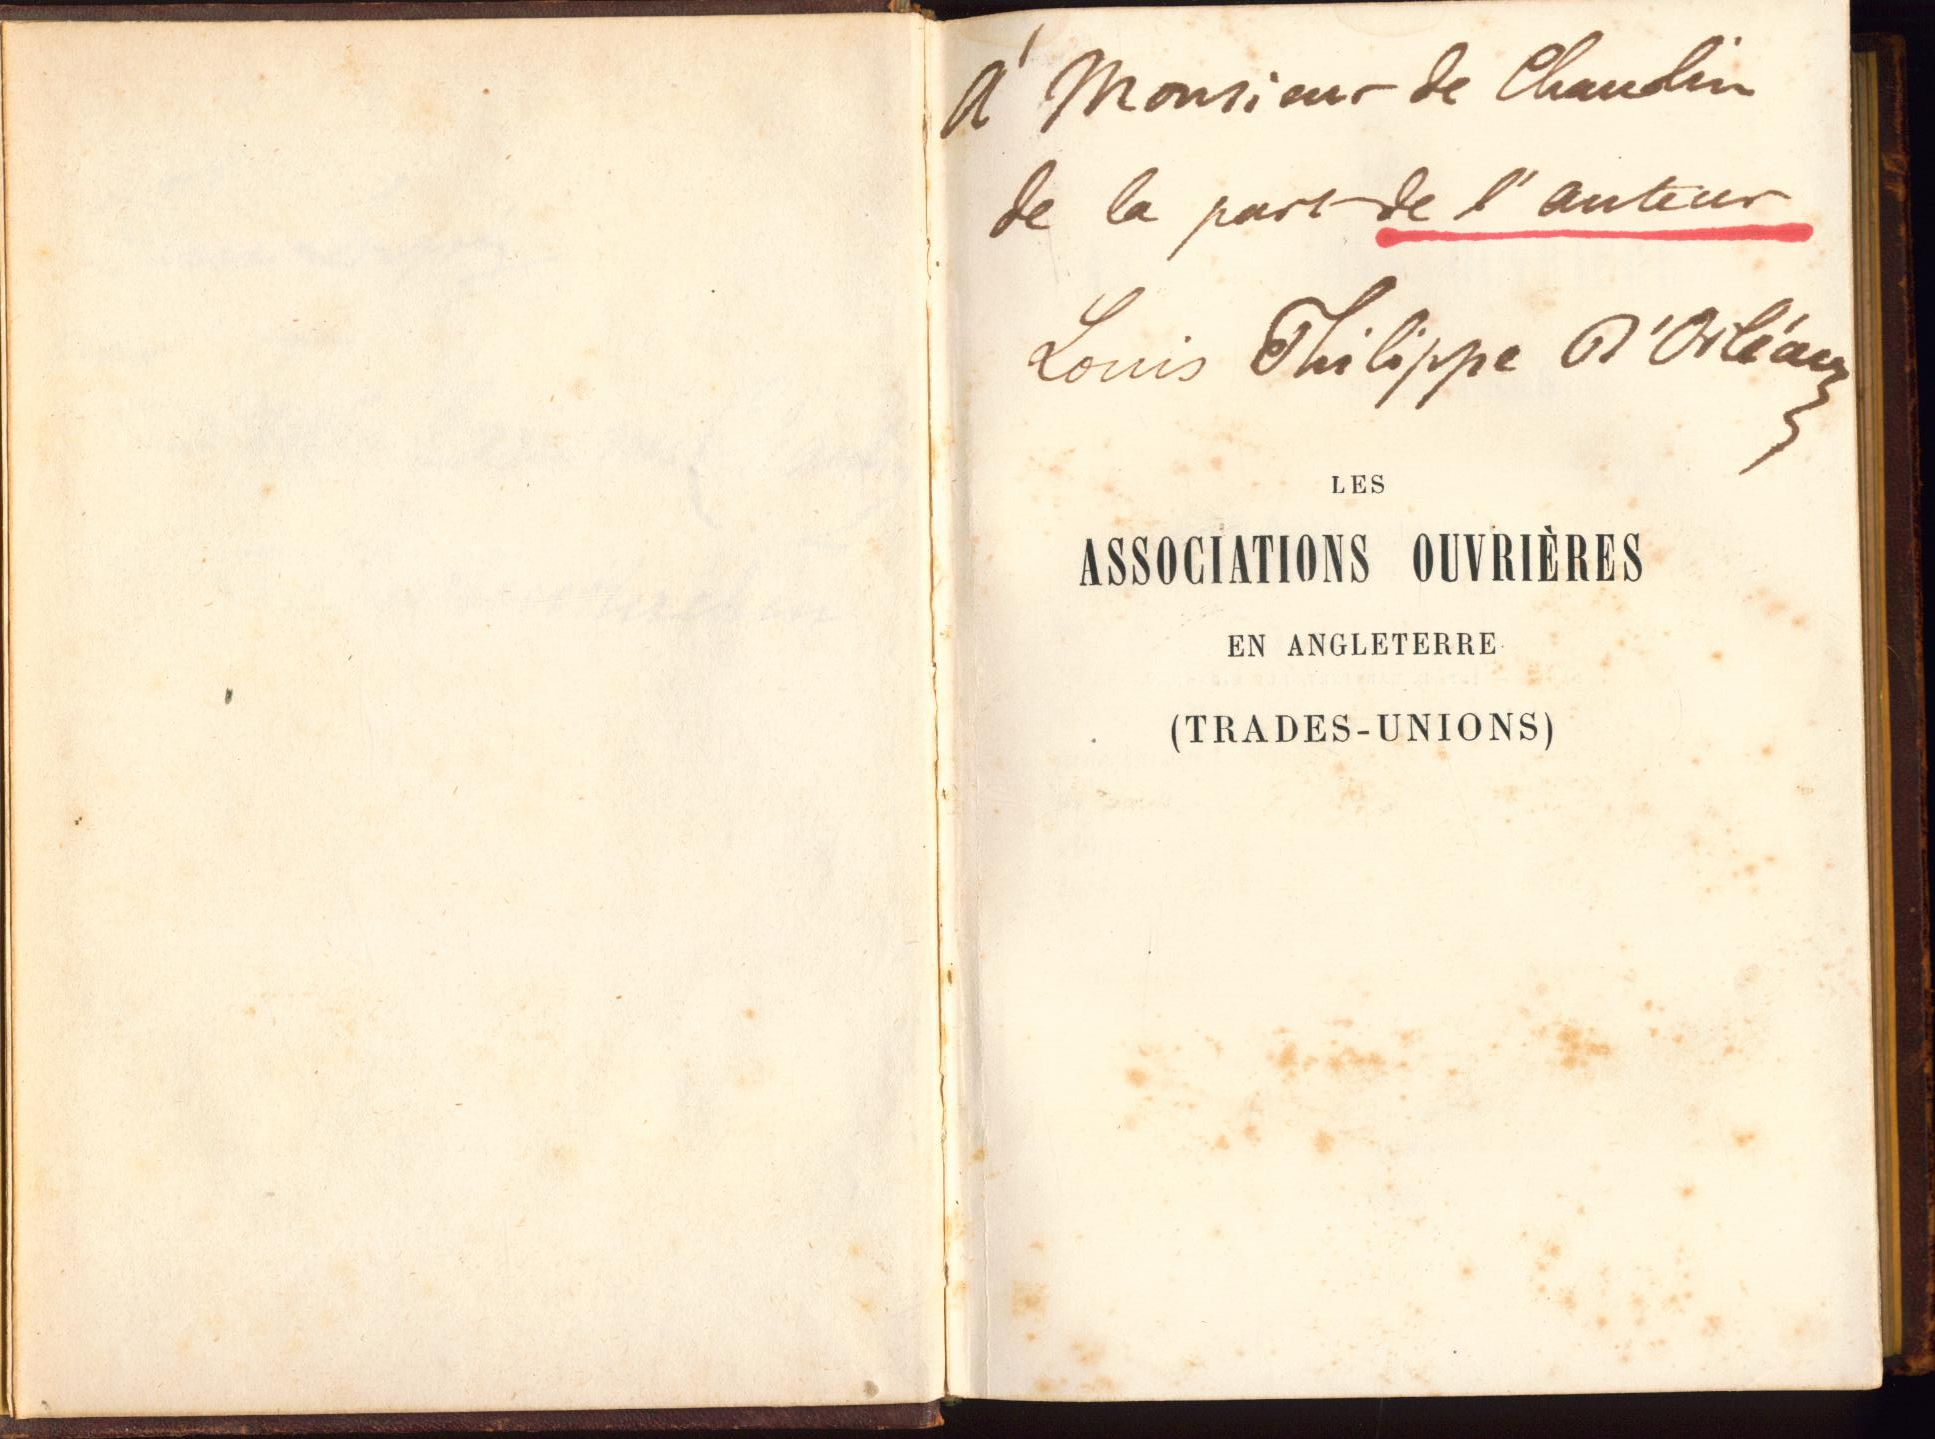 A' Monsieur de Chaudin
de la part de l'auteur
Louis Philippe D'Orléans
LES
ASSOCIATIONS OUVRIÈRES
EN ANGLETERRE
(TRADES-UNIONS)